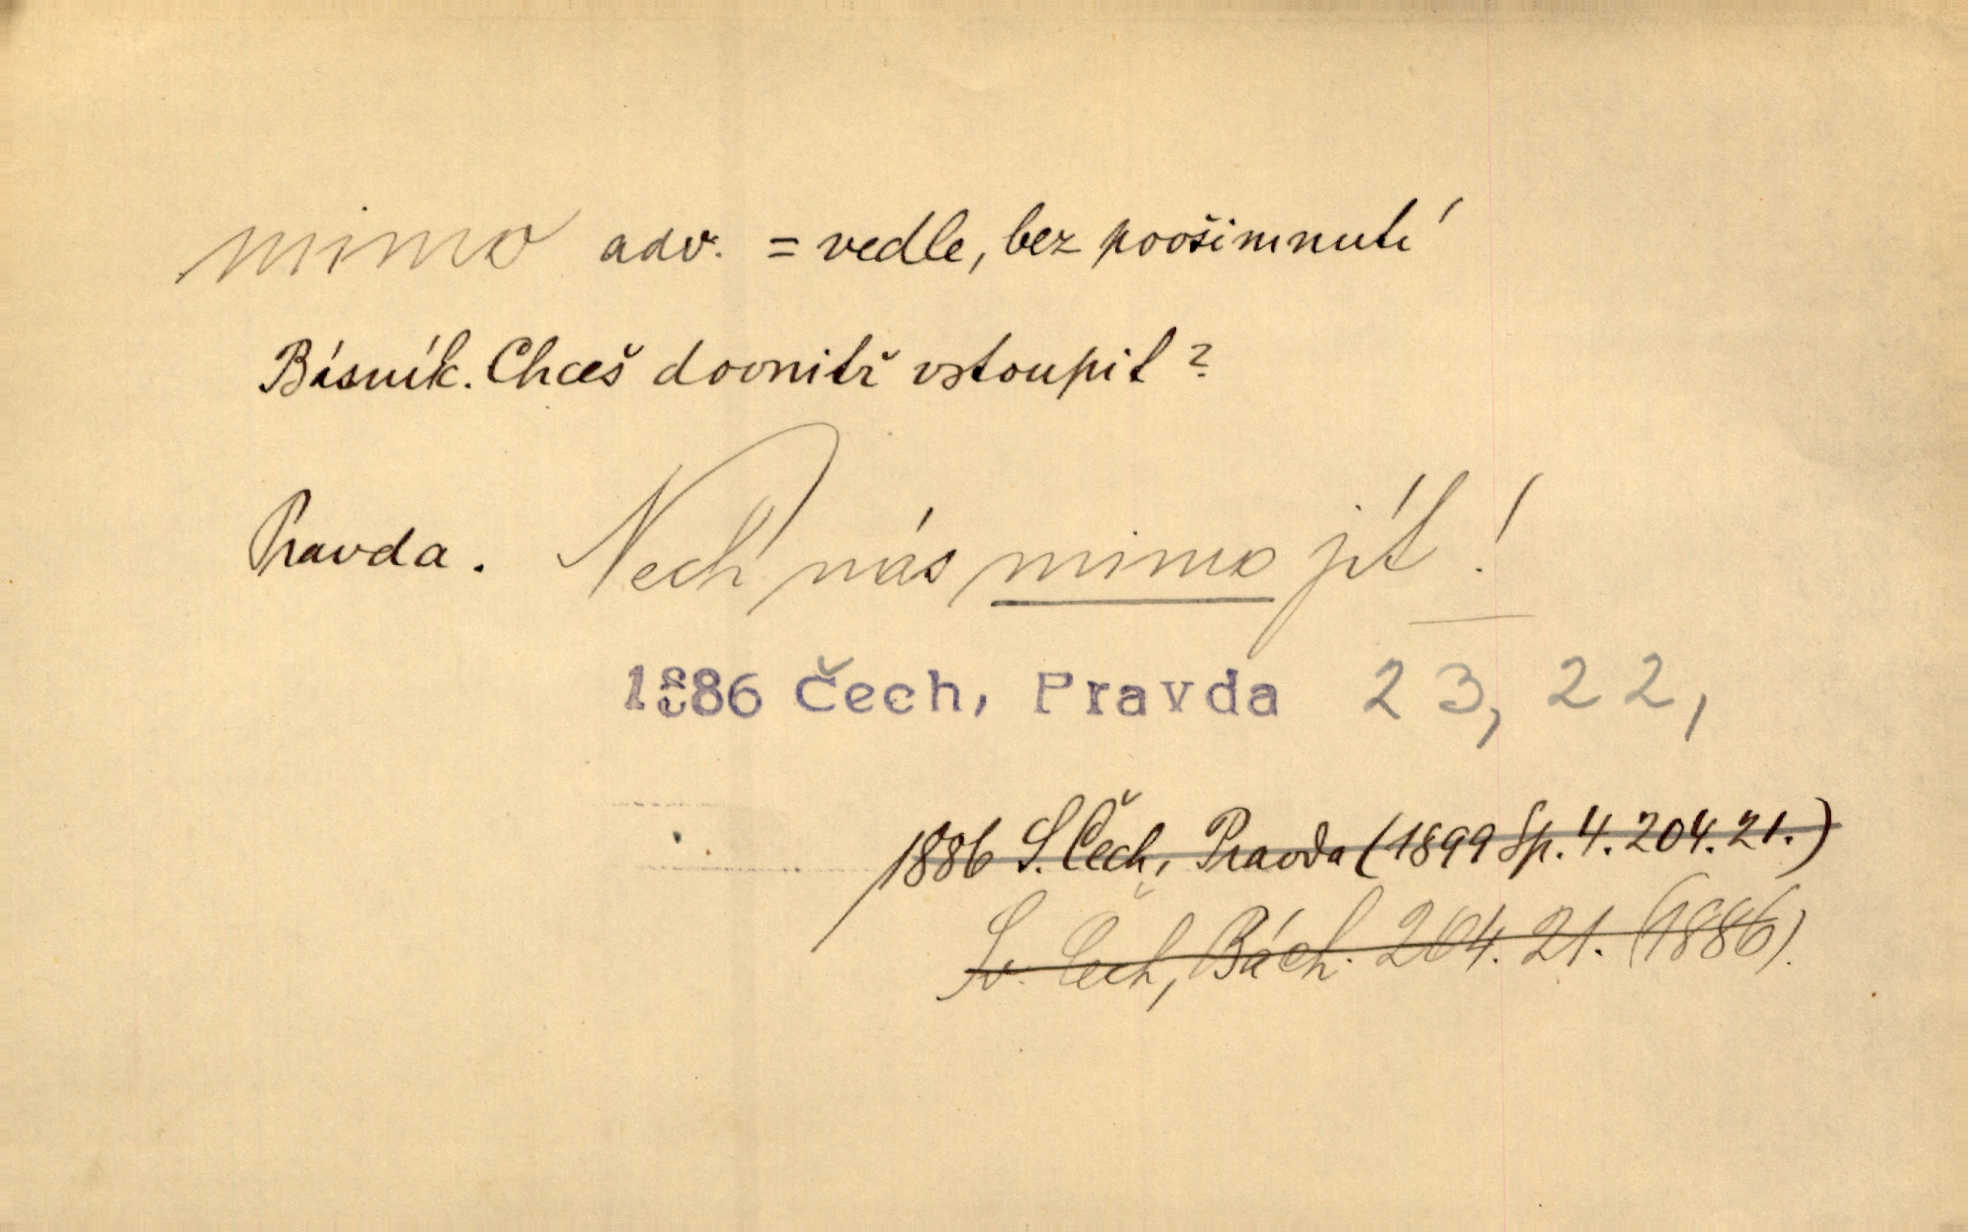 mimo adv. = vedle, bez povšimnutí
Básník. Chceš dovnitř vstoupit?
Pravda. Nech nás mimo jít!
1886 Čech, Pravda 23, 22,
1886 S. Čech, Pravda (1899 Sp. 4. 204. 21.)
Sv. Čech, Bách. 204. 21. (1886).